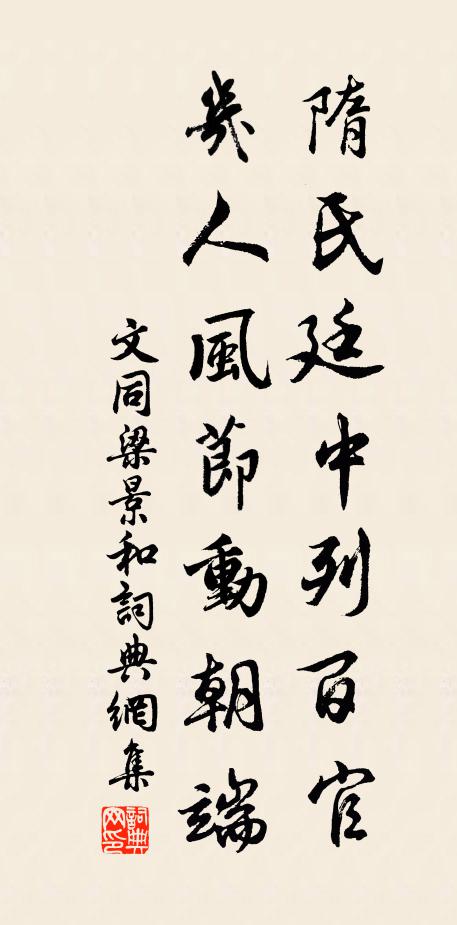 隋氏廷中列百官
幾人風節動朝端
文同梁景和詞典網集
詞典网印